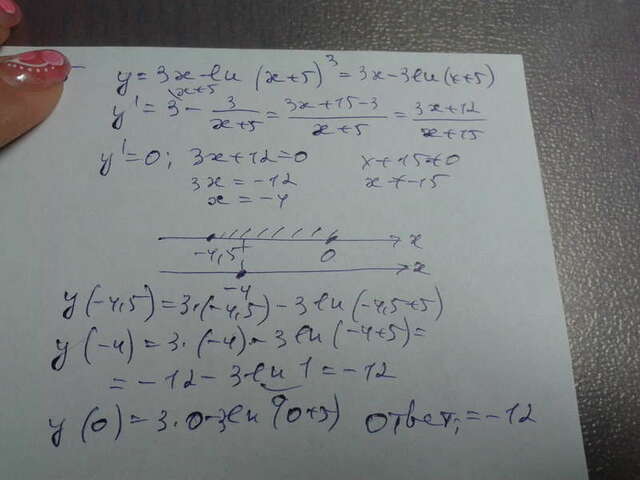 y = 3x - ln (x+5)³ = 3x - 3 ln (x+5)
y' = 3^{\x+5} - 3/(x+5) = (3x+15-3)/(x+5) = (3x+12)/(x+15)
y' = 0; 3x + 12 = 0 x + 15 ≠ 0
3x = -12 x ≠ -15
x = -4
-4,5 0 x
-4 x
y (-4,5) = 3·(-4,5) - 3 ln (-4,5+5)
y (-4) = 3·(-4) - 3 ln (-4+5) =
= -12 - 3 ln 1 = -12
0
y (0) = 3·0 - 3 ln (0+5) Ответ: = -12